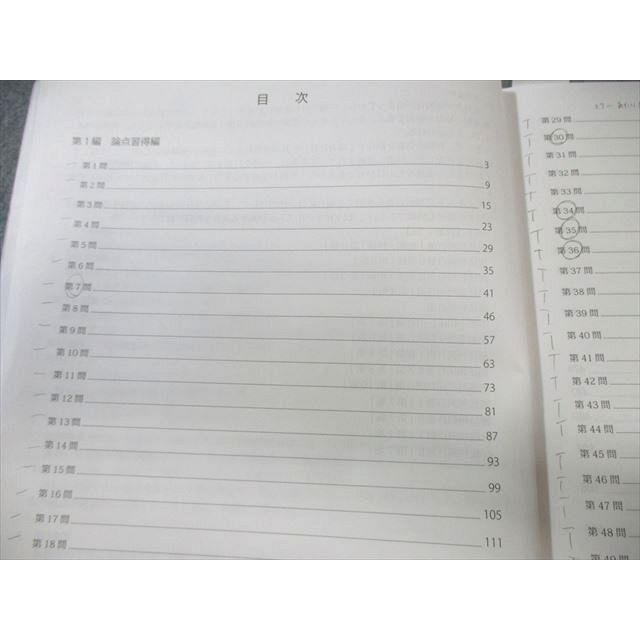 目 次
第1編 論点習得編
第1問 3
第2問 9
第3問 15
第4問 23
第5問 29
第6問 35
第7問 41
第8問 46
第9問 57
第10問 63
第11問 73
第12問 81
第13問 87
第14問 93
第15問 99
第16問 105
第17問 111
第18問
第29問
第30問
第31問
第32問
第33問
第34問
第35問
第36問
第37問
第38問
第39問
第40問
第41問
第42問
第43問
第44問
第45問
第46問
第47問
第48問
第49問